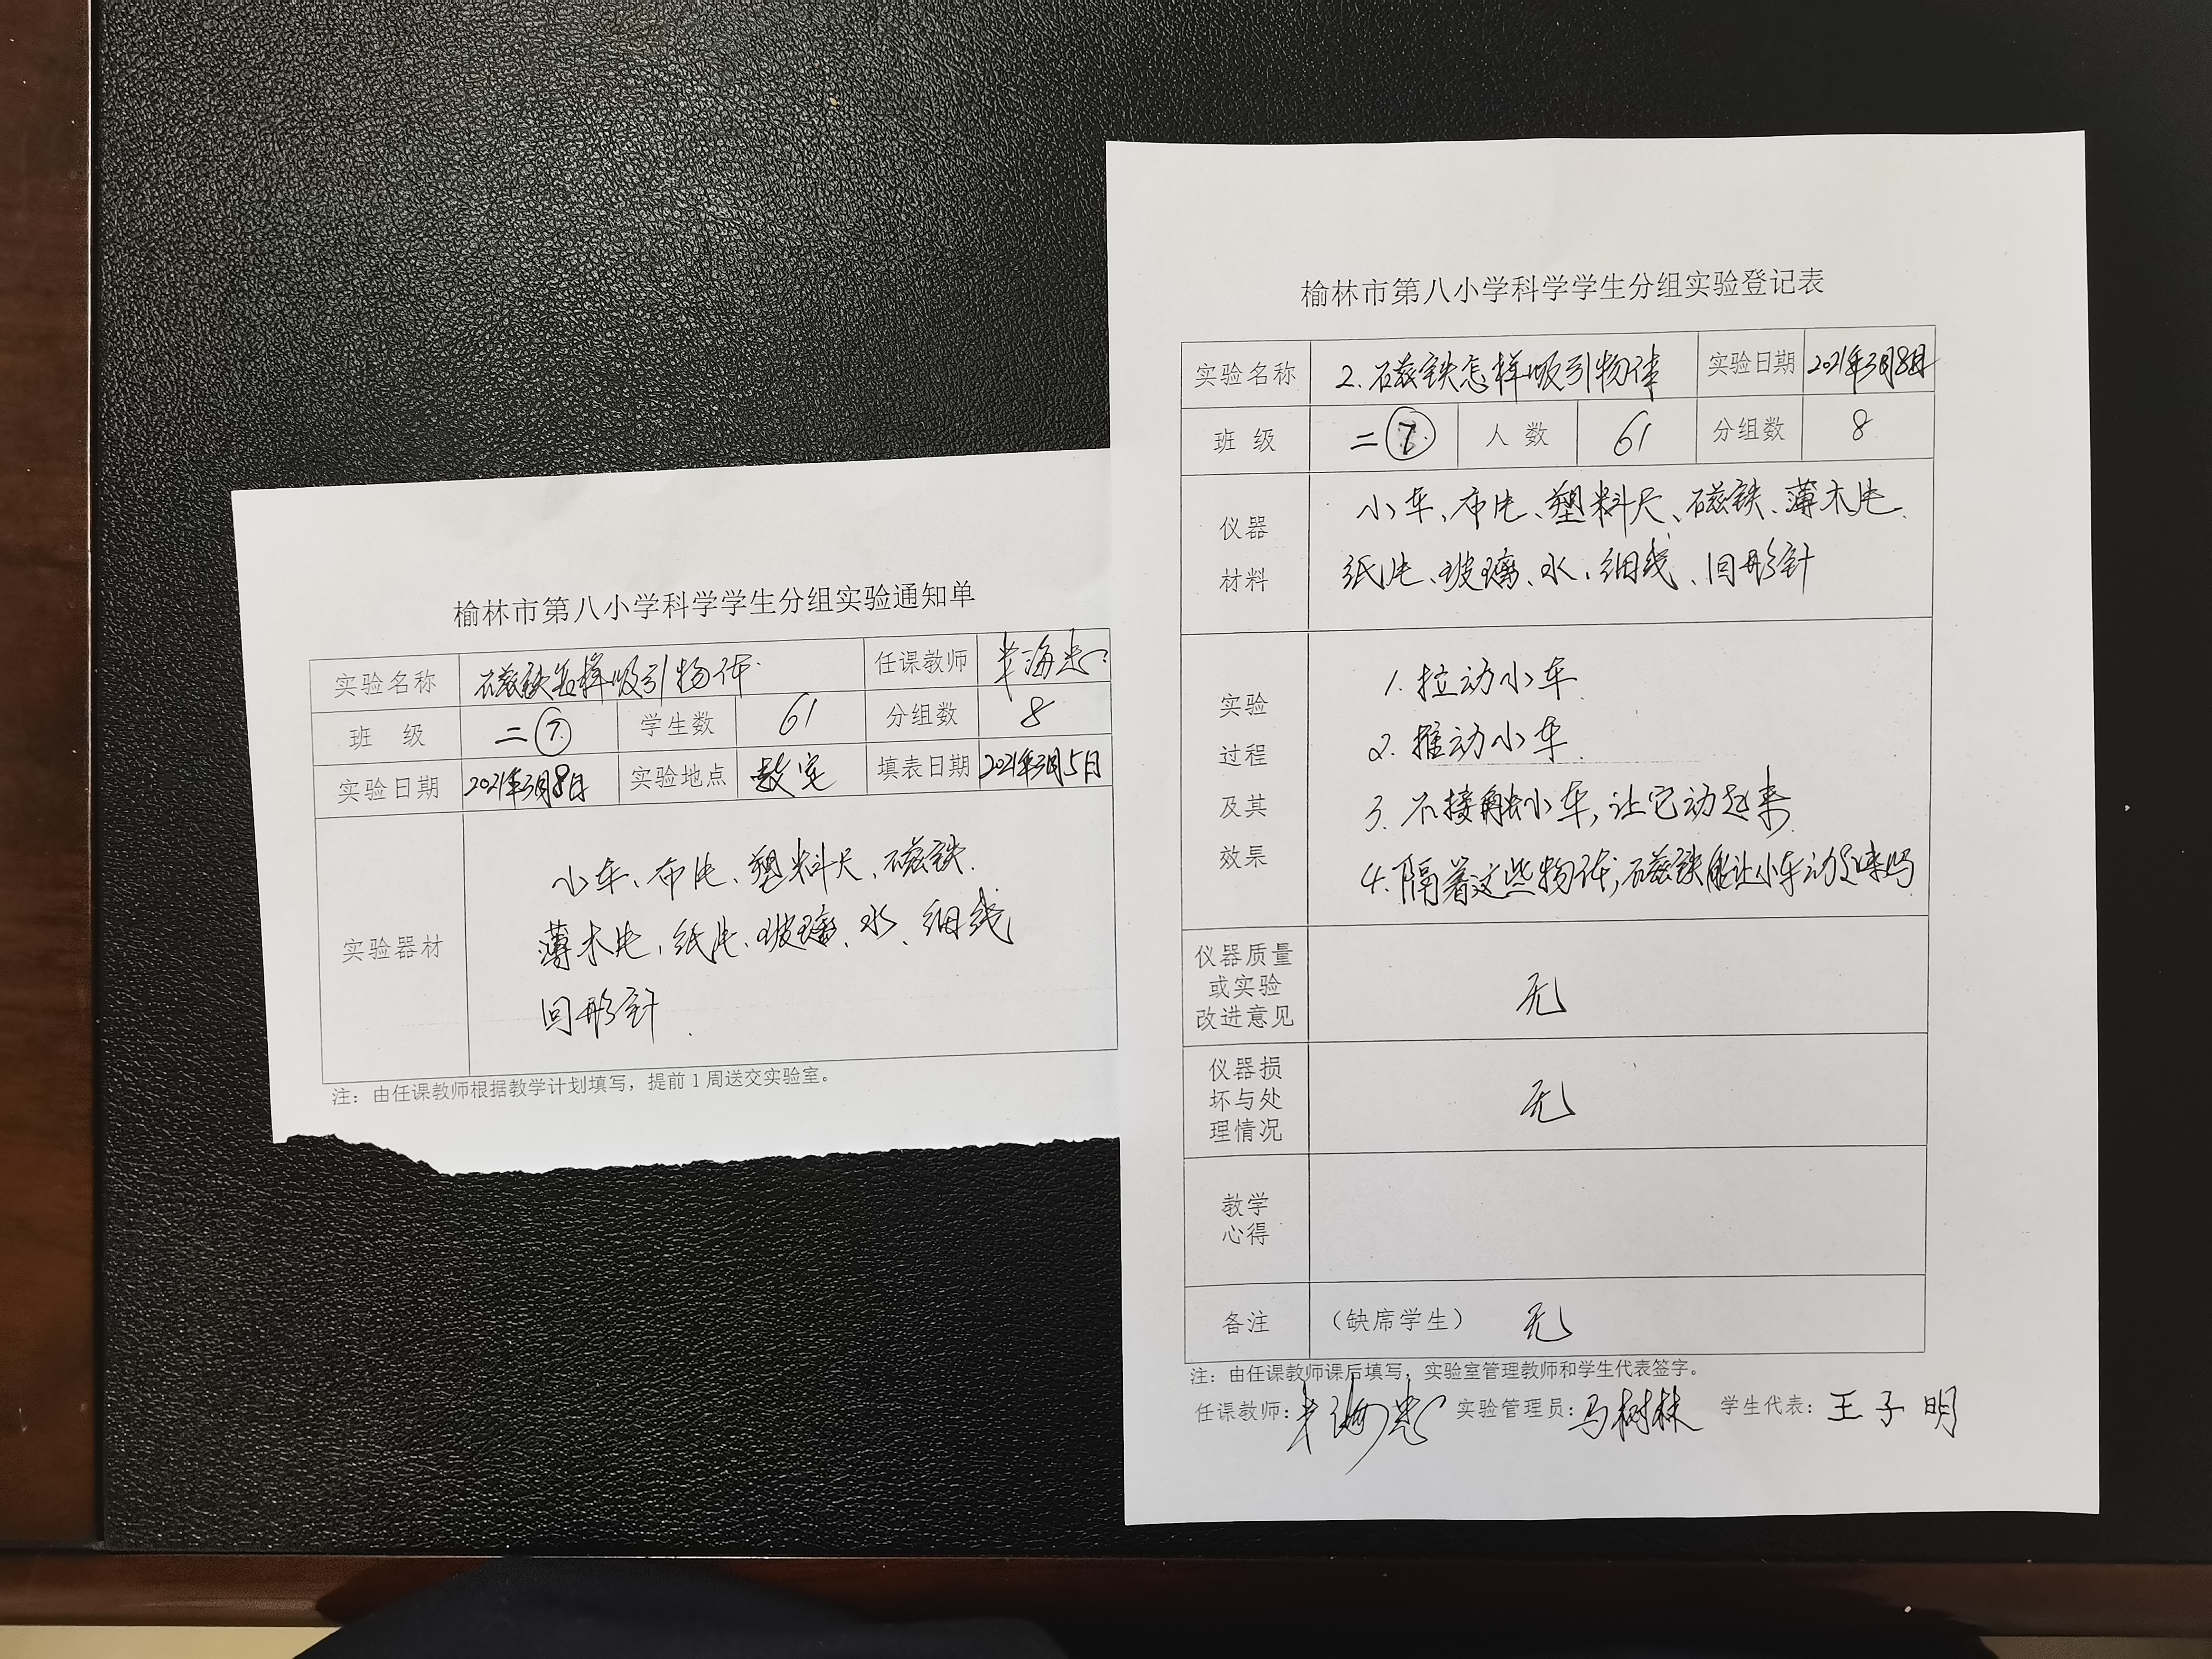 榆林市第八小学科学学生分组实验通知单
实验名称 磁铁怎样吸引物体 任课教师 海忠
班 级 二⑦ 学生数 61 分组数 8
实验日期 2021年3月8日 实验地点 教室 填表日期 2021年3月5日
实验器材
小车、布片、塑料尺、磁铁、
薄木片、纸片、玻璃、水、细线
回形针
注：由任课教师根据教学计划填写，提前1周送交实验室。
榆林市第八小学科学学生分组实验登记表
实验名称 2.磁铁怎样吸引物体 实验日期 2021年3月8日
班 级 二⑦ 人 数 61 分组数 8
仪器
材料
小车、布片、塑料尺、磁铁、薄木片、
纸片、玻璃、水、细线、回形针
实验
过程
及其
效果
1. 拉动小车
2. 推动小车
3. 不接触小车，让它动起来
4. 隔着这些物体，磁铁能让小车动起来吗
仪器质量
或实验
改进意见
无
仪器损
坏与处
理情况
无
教学
心得
备注 （缺席学生） 无
注：由任课教师课后填写，实验室管理教师和学生代表签字。
任课教师：海忠 实验管理员：马树林 学生代表：王子明